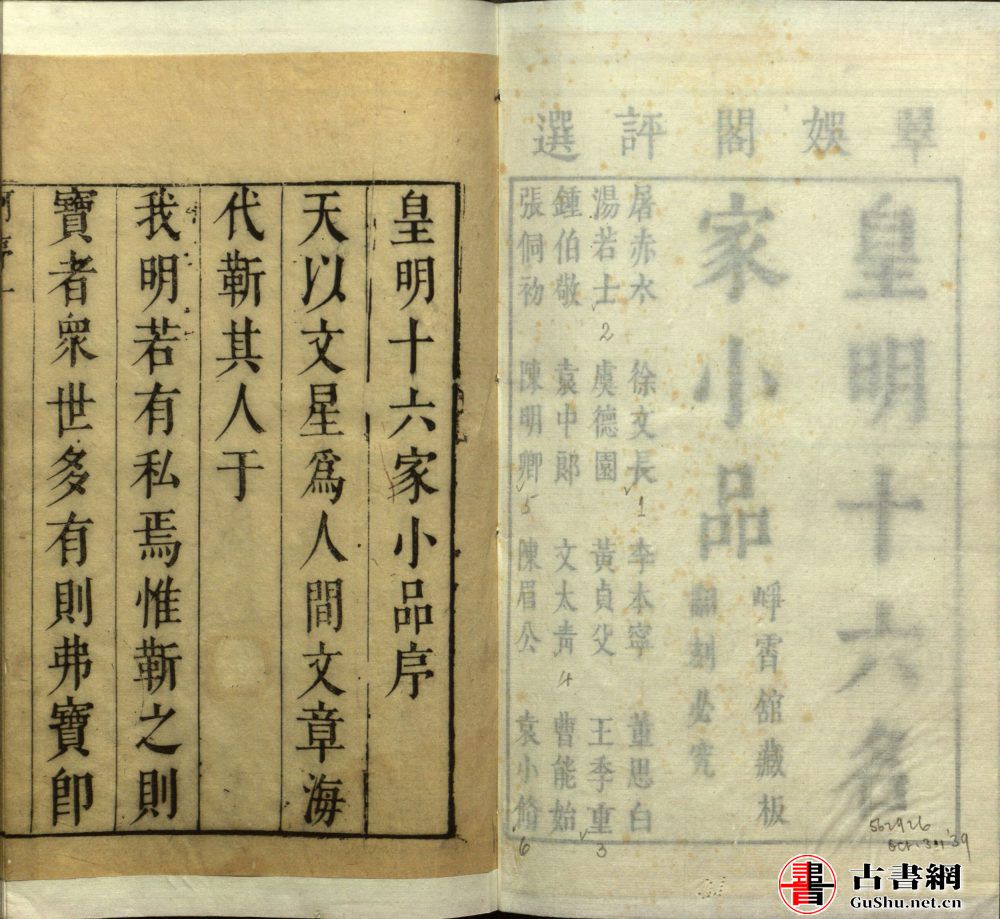 翠娛閣評選
皇明十六名
家小品
崢霄舘藏板
翻刻必究
屠赤水 徐文長 李本寧 董思白
湯若士 虞德園 黃貞父 王季重
鍾伯敬 袁中郎 文太青 曹能始
張侗初 陳明卿 陳眉公 袁小脩
2
1
5
4
3
6
562926
Oct. 30 '39
皇明十六家小品序
天以文星爲人間文章海
代蘄其人于
我明若有私焉惟蘄之則
寶者衆世多有則弗寶卽
古書網
GuShu.net.cn